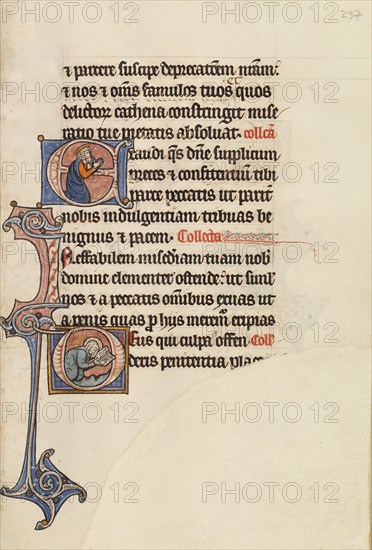 237
⁊ parcere suscipe deprecatoem nram:
Et
⁊ nos ⁊ omis famulos tuos quos
delictor cathena constringit mise
ratio tue pietatis absoluat. collca
Exaudi qs dne supplicum
preces ⁊ confitentium tibi
parce peccatis ut parit
nobis indulgentiam tribuas be
nignus ⁊ pacem. Collecta
Ineffabilem misediam tuam nob
domine clementer ostende: ut simul
nos ⁊ a peccatis omibus exuas ut
a penis quas p hijs merem eripias
Deus qui culpa offen Coll
deris penitentia placa
PHOTO 12